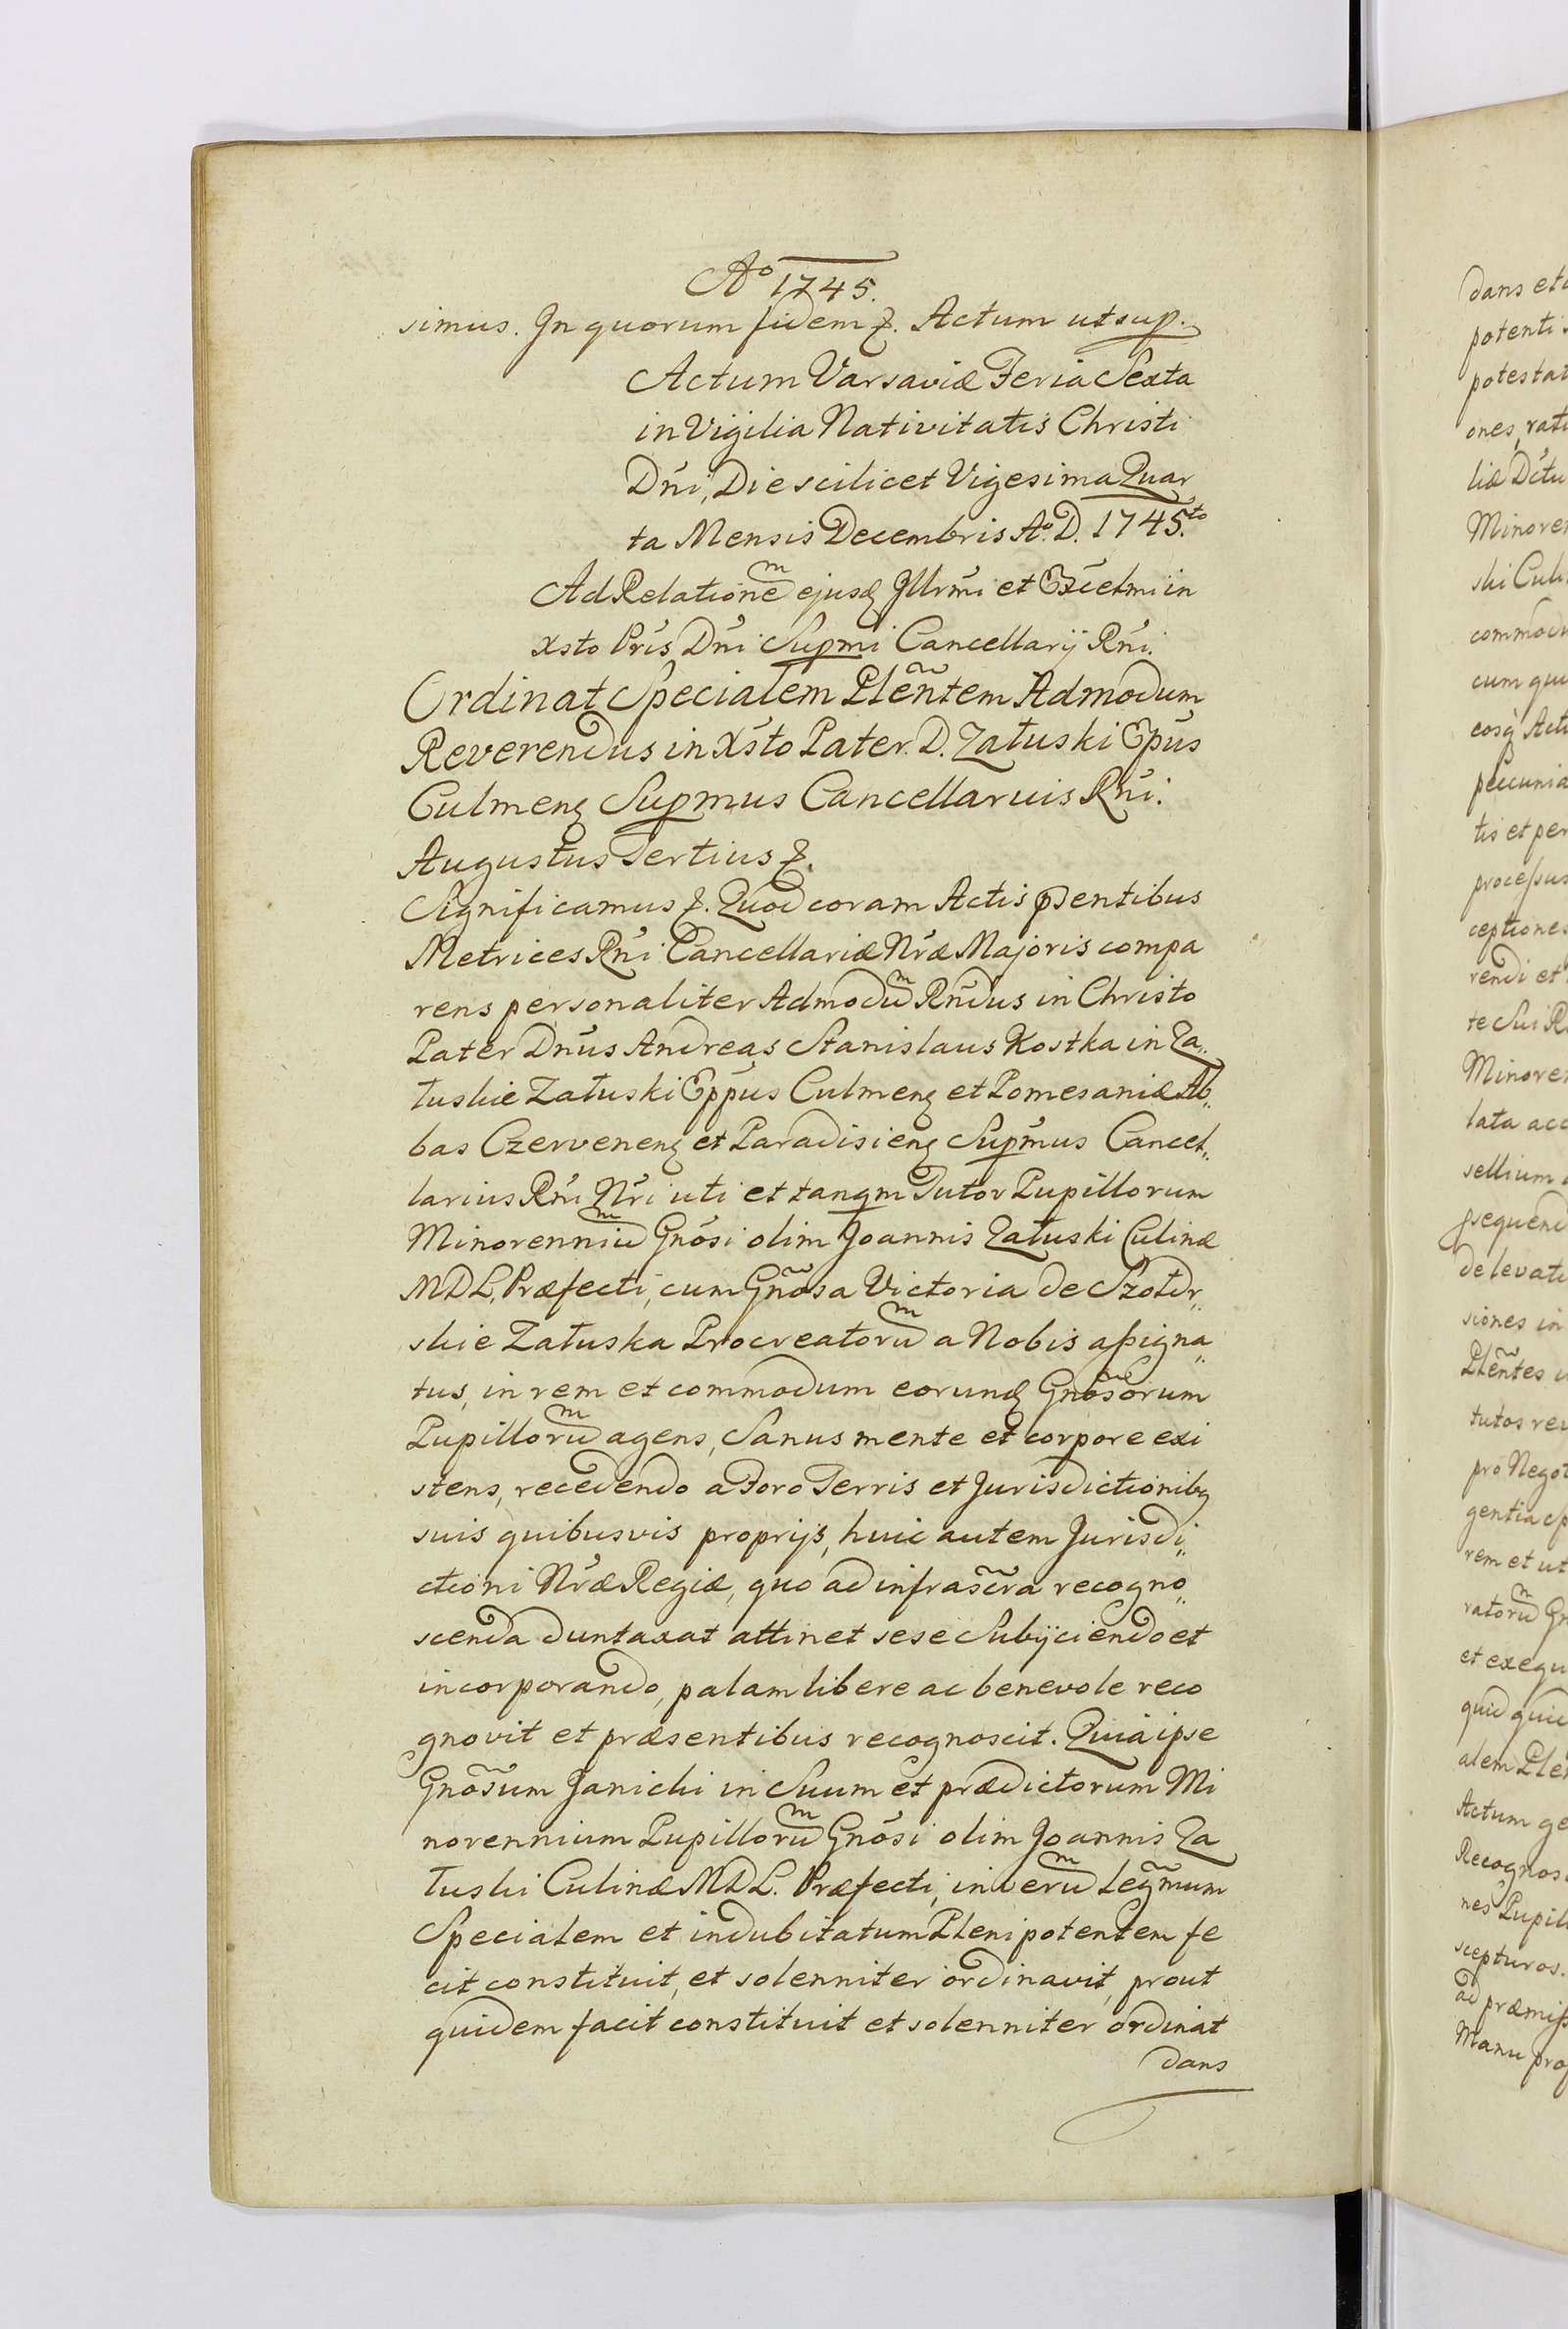 Aº 1745.
simus. In quorum fidem &. Actum ut sup.
Actum Varsaviæ Feria Sexta
in Vigilia Nativitatis Christi
Dni, Die scilicet Vigesima Quar
ta Mensis Decembris Aº. D. 1745.to
Ad Relationem ejusdq Illrmi et Excelmi in
Xsto Pris Dni Supmi Cancellarij Rni.
Ordinat Specialem Plentem Admodum
Reverendus in Xsto Pater. D. Załuski Epus
Culmenq Supmus Cancellarius Rni.
Augustus Tertius &.
Significamus &. Quod coram Actis psentibus
Metrices Rni Cancellariæ Nræ Majoris compa
rens personaliter Admodum Rndus in Christo
Pater Dnus Andreas Stanislaus Kostka in Za„
łuskie Załuski Eppus Culmenq et Pomesaniæ Ab„
bas Czervenenq et Paradisienq Supmus Cancel„
larius Rni Nri uti et tanqm Tutor Pupillorum
Minorennium Gnosi olim Joannis Załuski Culinæ
MDL, Præfecti, cum Gnosa Victoria de Szołdr„
skie Załuska Procreatorum a Nobis assigna„
tus, in rem et commodum eorundq Gnosorum
Pupillorum agens, Sanus mente et corpore exi
stens, recedendo a Foro Terris et Jurisdictionibq
suis quibusvis proprijs, huic autem Jurisdi„
ctioni Nræ Regiæ, quo ad infrascra recogno„
scenda duntaxat attinet sese Subijciendo et
incorporando, palam libere ac benevole reco
gnovit et præsentibus recognoscit. Quia ipse
Gnosum Janicki in Suum et prædictorum Mi
norennium Pupillorum Gnosi olim Joannis Za
łuski Culinæ MDL. Præfecti, in verum Legmum
Specialem et indubitatum Plenipotentem fe
cit constituit, et solenniter ordinavit, prout
quidem facit constituit et solenniter ordinat
dans
dans et
potenti
potestat
ones, rati
liæ Dctu
Minoren
ski Culi
commodu
cum qui
eosq Acti
pecunia
tis et per
processus
ceptiones
rendi et
te Sui R
Minoren
lata acc
sellium
psequend
de levati
siones in
Plentes
tutos rev
pro Negot
gentia
rem et ut
ratorum Gn
et exequ
quid quid
alem Plen
Actum ge
Recognos
nes Pupill
scepturos.
ad præmiss
Manu prop